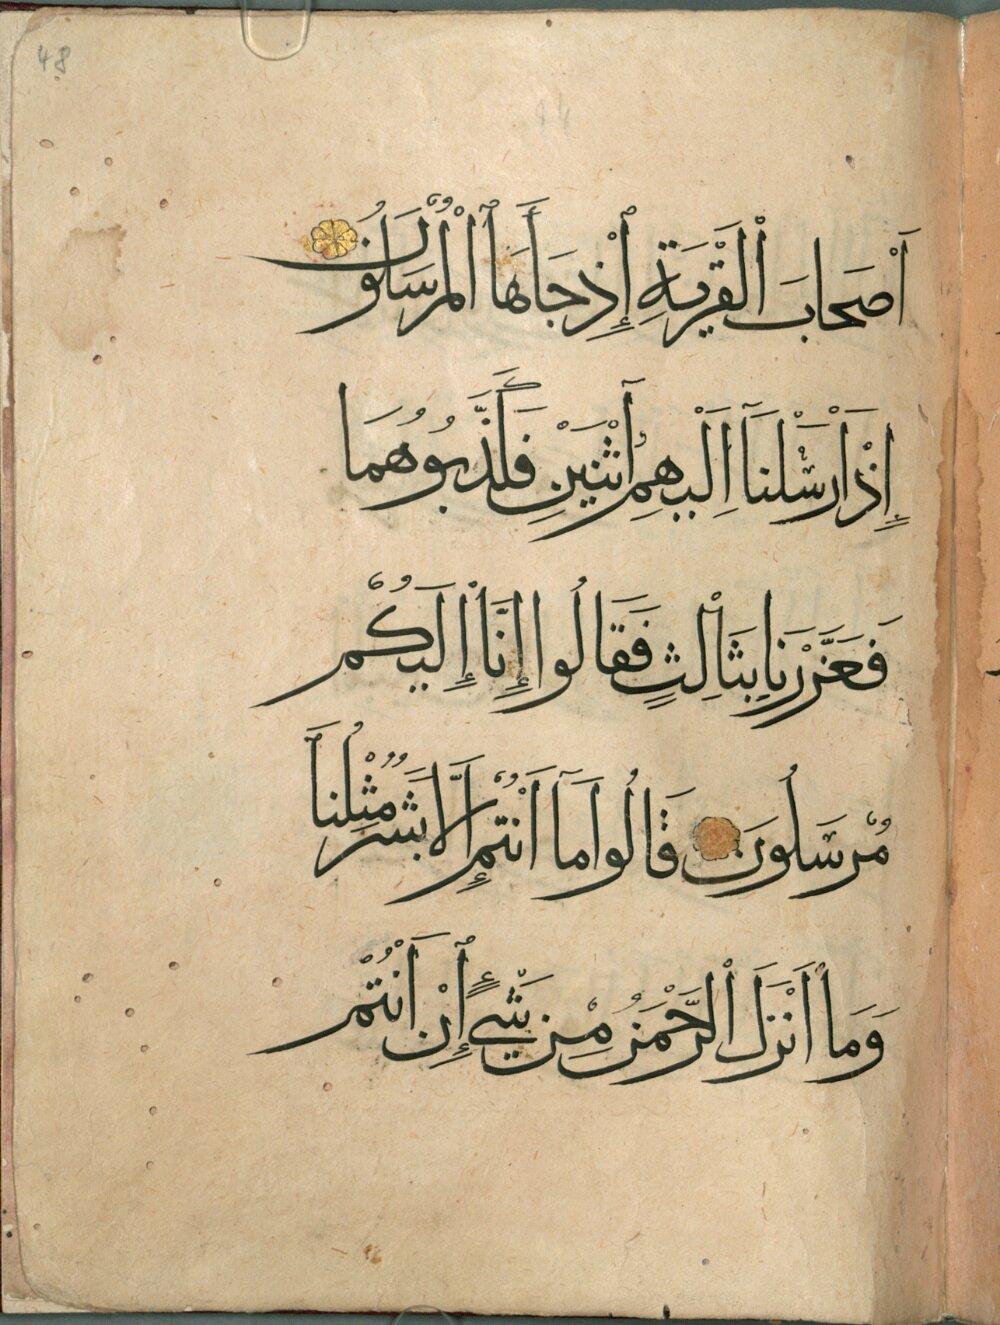 48
أَصْحَابَ الْقَرْيَةِ إِذْ جَاءَهَا الْمُرْسَلُونَ
إِذْ أَرْسَلْنَا إِلَيْهِمُ اثْنَيْنِ فَكَذَّبُوهُمَا
فَعَزَّزْنَا بِثَالِثٍ فَقَالُوا إِنَّا إِلَيْكُمْ
مُرْسَلُونَ قَالُوا مَا أَنْتُمْ إِلَّا بَشَرٌ مِثْلُنَا
وَمَا أَنْزَلَ الرَّحْمَنُ مِنْ شَيْءٍ إِنْ أَنْتُمْ